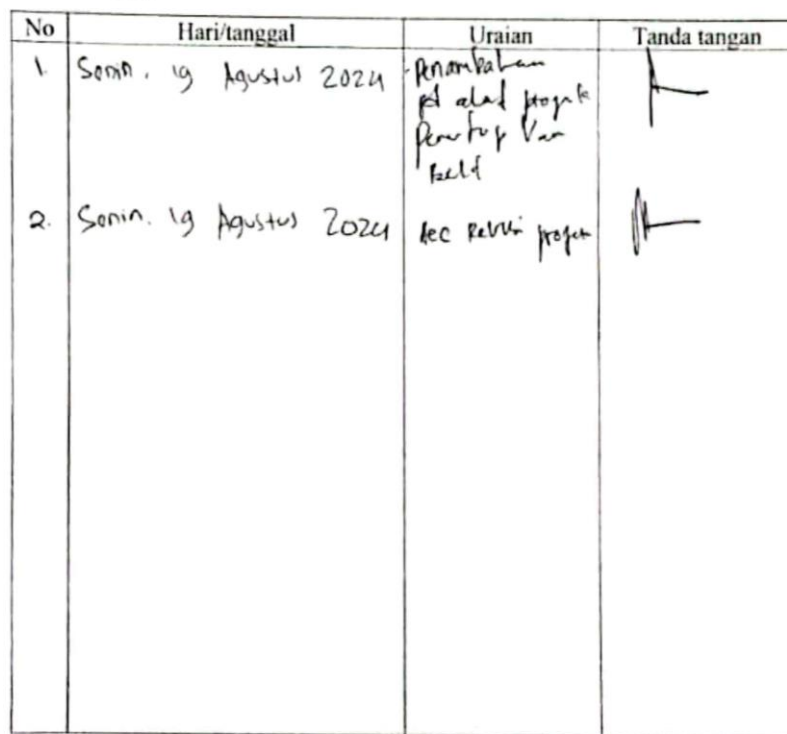 No Hari/tanggal Uraian Tanda tangan
1. Senin. 19 Agustus 2024 - Penambahan
pd alat proyek
Penutup Van
Belt
2. Senin. 19 Agustus 2024 Acc Revisi proyek